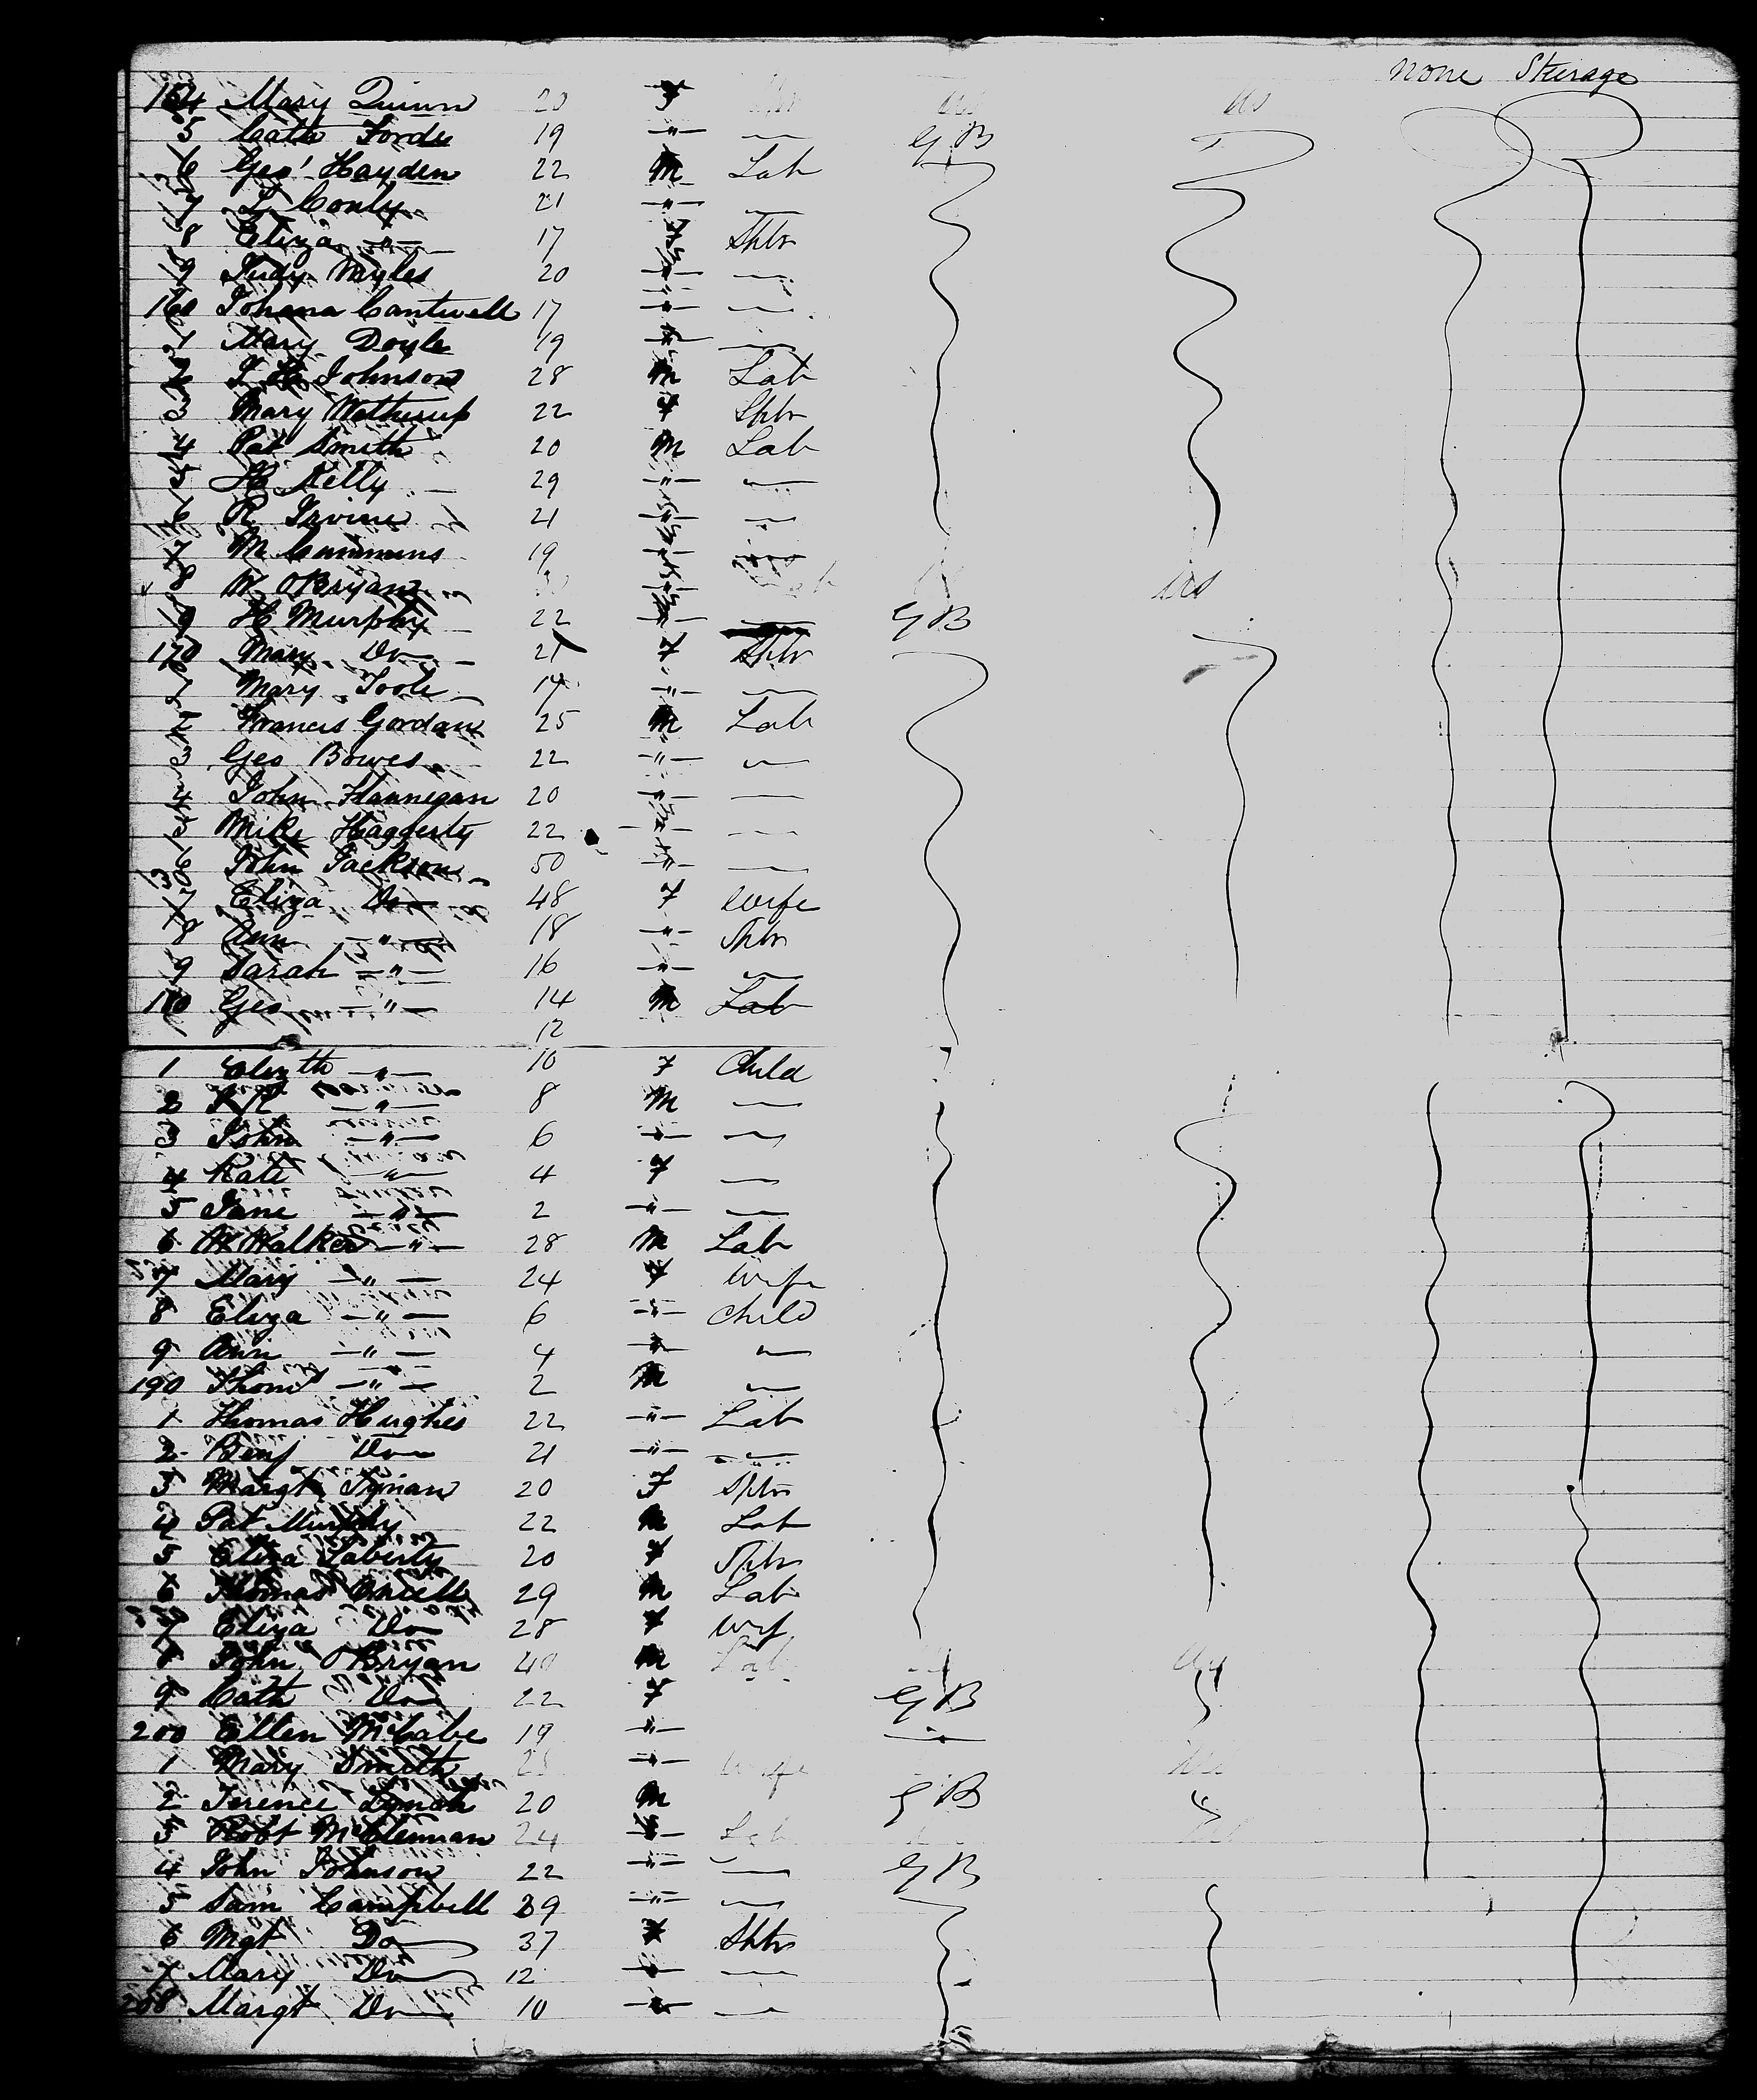 none Sterage
154 Mary Quinn 20 F US US
5 Cath Forde 19 -"- — GB
6 Geo' Hayden 22 M Lab
7 L Conly 21 -"- —
8 Eliza -"- 17 F Sptr
9 Judy Myles 20 -"- —
160 Johana Cantwell 17 -"- —
1 Mary Doyle 19 -"- —
2 J H Johnson 28 M Lab
3 Mary Wetherup 22 F Sptr
4 Pat Smith 20 M Lab
5 H Kelly 29 -"- —
6 R Irvine 21 -"- —
7 M Cummins 19 -"- —
8 W OBryan -"- US
9 H Murphy 22 -"- — GB
170 Mary Do 21 F Sptr
1 Mary Toole 19 -"- —
2 Francis Gordan 25 M Lab
3 Geo Bowes 22 -"- —
4 John Flannegan 20 -"- —
5 Mike Haggerty 22 -"- —
6 John Jackson 50 -"- —
7 Eliza Do 48 F Wife
8 Ann -"- 18 -"- Sptr
9 Sarah -"- 16 -"- —
180 Geo -"- 14 M Lab
12
1 Elizth -"- 10 F Child
2 -"- 8 M —
3 John -"- 6 -"- —
4 Kate -"- 4 F —
5 Jane -"- 2 -"- —
6 W Walker -"- 28 M Lab
7 Mary -"- 24 F Wife
8 Eliza -"- 6 -"- Child
9 Ann -"- 4 -"- —
190 Thoms -"- 2 M —
1 Thomas Hughes 22 -"- Lab
2 Benj Do 21 -"- —
3 Margt Tynan 20 F Sptr
4 Pat Murphy 22 M Lab
5 Eliza Laberty 20 F Sptr
6 Thomas 29 M Lab
7 Eliza Do 28 F Wif
8 John OBryan 40 M Lab
9 Cath Do 22 F GB
200 Ellen McCabe 19 -"- -"-
1 Mary Smith -"- Wife US
2 Terence Lynch 20 M GB
3 Robt McClennan 24 -"- Lab
4 John Johnson 22 -"- — GB
5 Sam Campbell 39 -"- —
6 Mgt Do 37 F Sptr
7 Mary Do 12 -"- —
208 Margt Do 10 -"- —